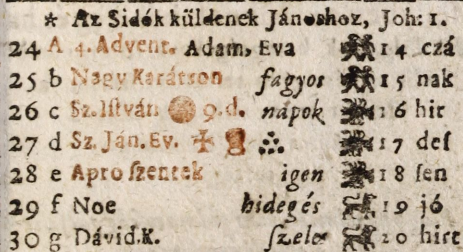 * Az Sidók küldenek Jánoshoz, Joh: 1.
24 A 4. Advent. Adam, Eva 14 czá
25 b Nagy Karátson fagyos 15 nak
26 c Sz. Iſtván 9. d. napok 16 hir
27 d Sz. Ján. Ev. 17 deſ
28 e Apro ſzentek igen 18 ſen
29 f Noe hideg és 19 jó
30 g Dávid. K. ſzeles 20 hirt